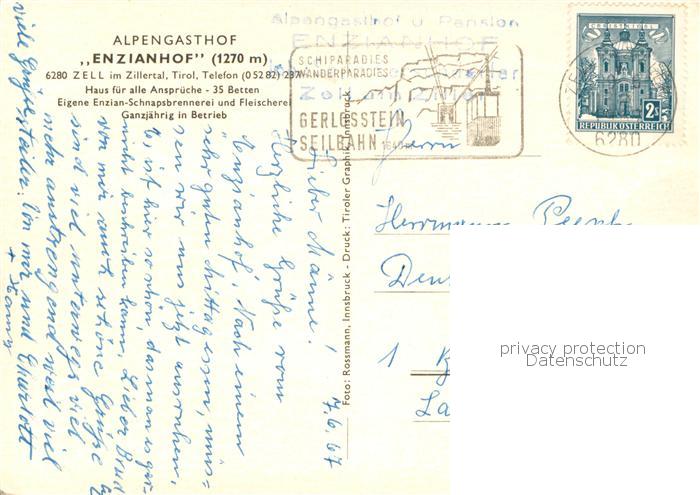 ALPENGASTHOF
„ENZIANHOF" (1270 m)
6280 ZELL im Zillertal, Tirol, Telefon (0 52 82) 237
Haus für alle Ansprüche - 35 Betten
Eigene Enzian-Schnapsbrennerei und Fleischerei
Ganzjährig in Betrieb
Alpengasthof u Pension
ENZIANHOF
Zell am Ziller
SCHIPARADIES
WANDERPARADIES
GERLOSSTEIN
SEILBAHN 1640m
CHRISTKINDL
2S
REPUBLIK ÖSTERREICH
6280
Foto: Rossmann, Innsbruck - Druck: Tiroler Graphik, Innsbruck
7.6.67
Lieber Männe!
Herzliche Grüße vom
Enzianhof. Nach einem
sehr guten Mittagessen, müs=
sen wir uns jetzt ausruhen.
Es ist hier so schön, das man es gar
nicht beschreiben kann. Lieber
von mir auch schöne Grüße
sind viel unterwegs
mehr anstrengend weil viel
viele Von mir und
Herrn
Herrmann
1
privacy protection
Datenschutz